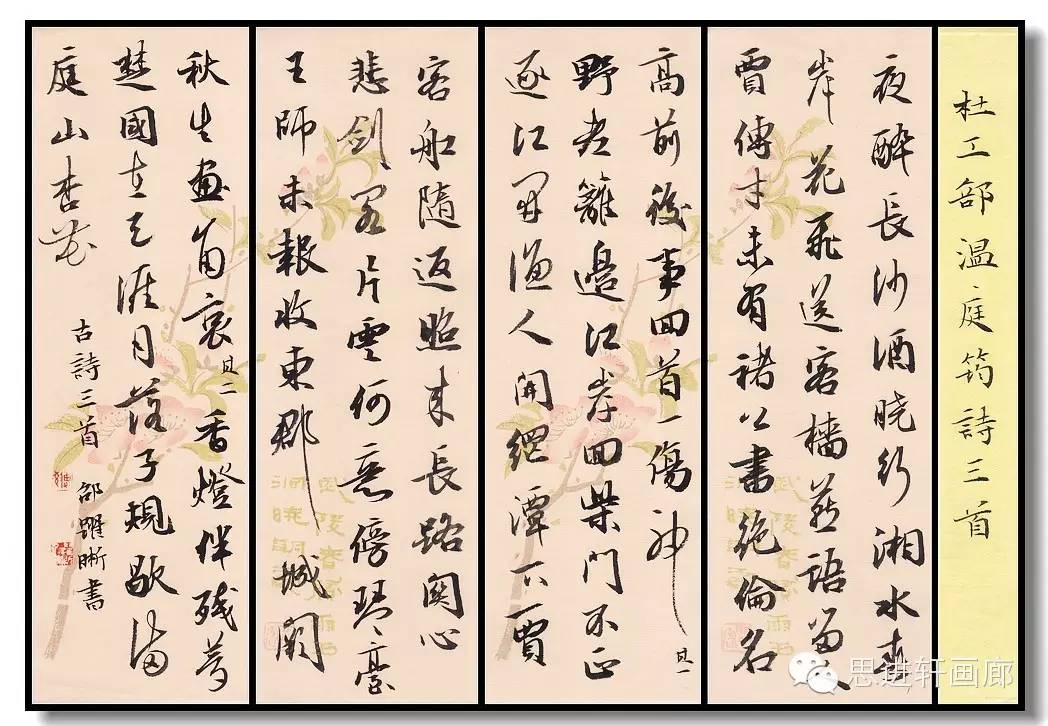 杜工部温庭筠詩三首
夜醉長沙酒曉行湘水春
岸花飛送客檣燕語留人
賈傅才未有褚公書絶倫名
高前後事回首一傷神 其一
野老籬邊江岸回柴門不正
逐江开漁人開網潭下賈
客船隨返照来長路関心
悲劍閣片雲何意傍琴臺
王師未報收東郡城闕
秋生畫角哀 其二 香燈伴殘夢
楚國在天涯月落子規歇滿
庭山杏花
古詩三首
邵躍晰書
思进轩画廊